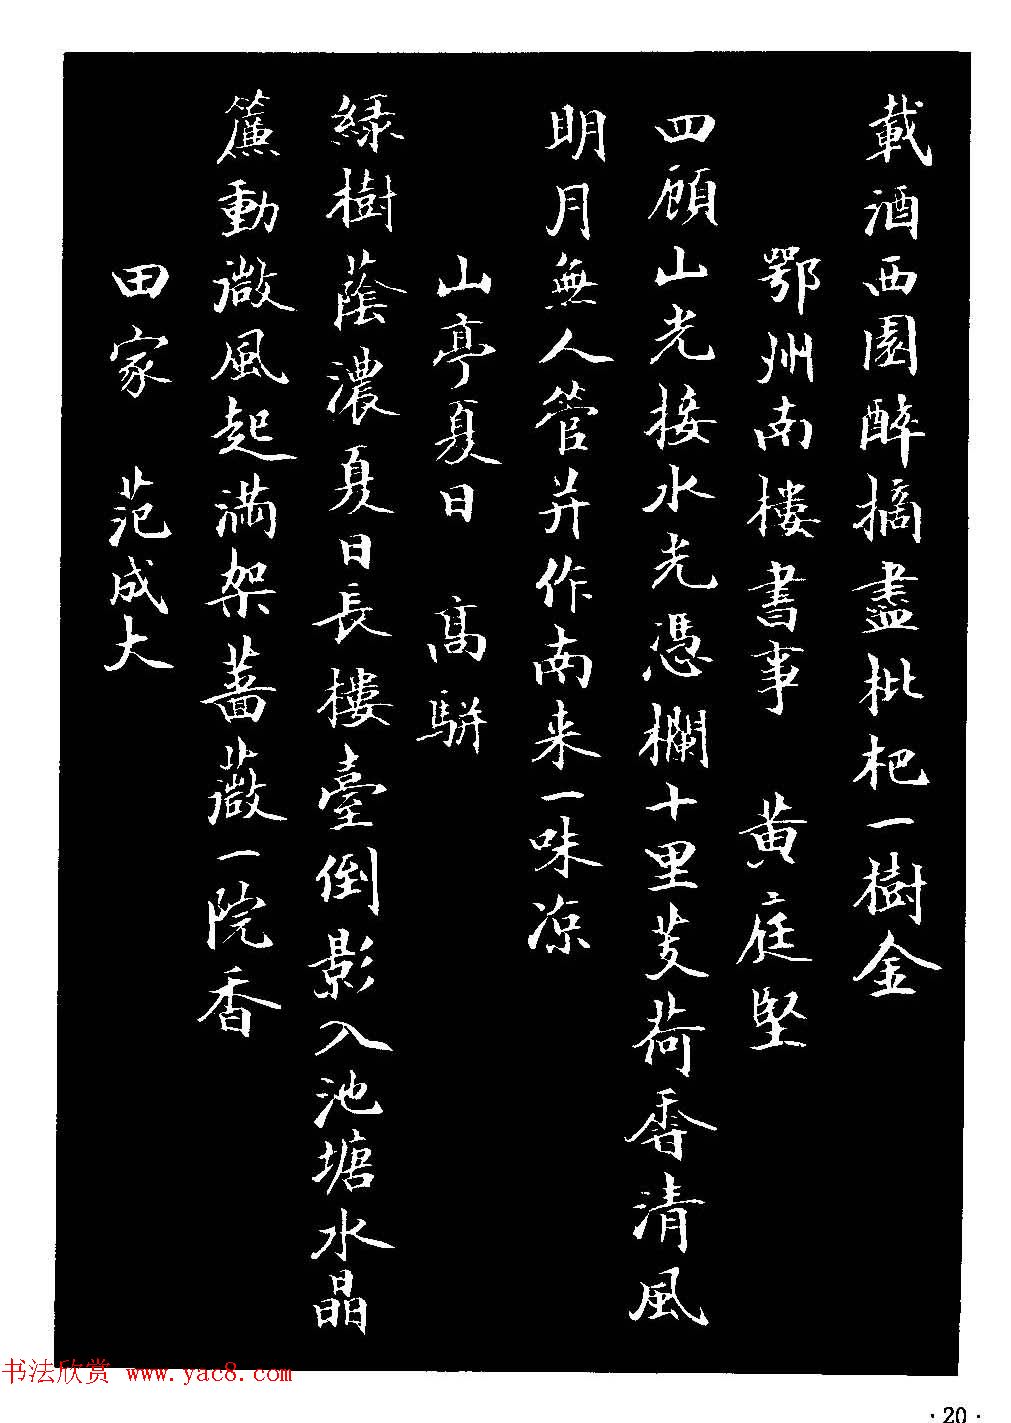 載酒西園醉摘盡枇杷一樹金
鄂州南樓書事 黄庭堅
四顧山光接水光憑欄十里芰荷香清風
明月無人管并作南来一味凉
山亭夏日 高駢
緑樹蔭濃夏日長樓臺倒影入池塘水晶
簾動微風起滿架薔薇一院香
田家 范成大
书法欣赏 www.yac8.com
·20·